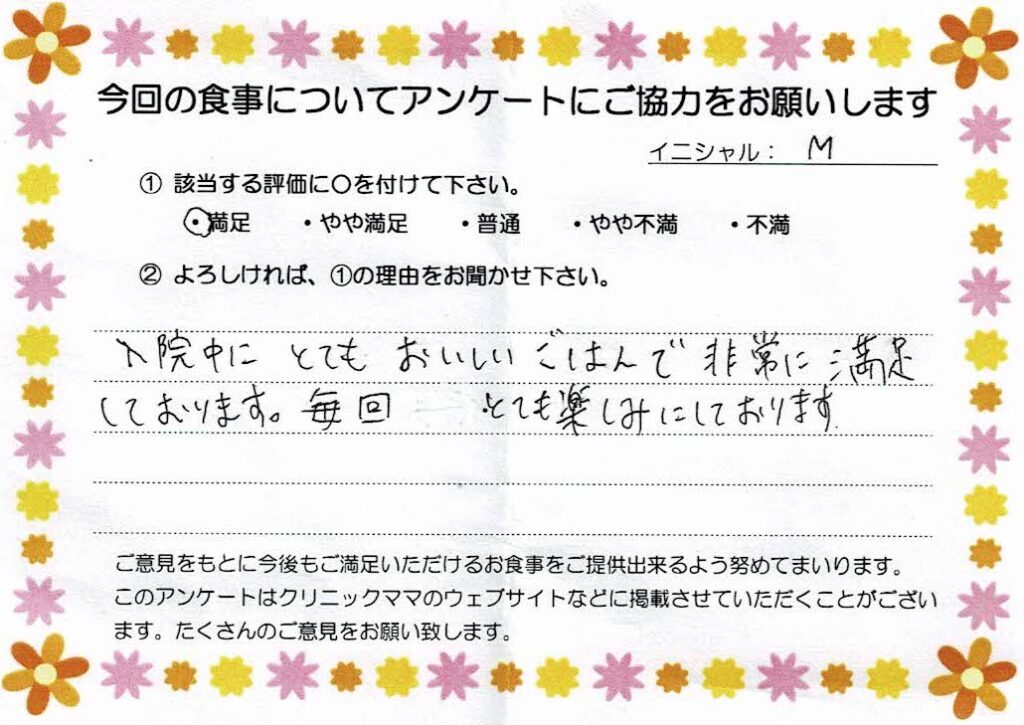 今回の食事についてアンケートにご協力をお願いします
イニシャル： M
① 該当する評価に〇を付けて下さい。
・満足 ・やや満足 ・普通 ・やや不満 ・不満
② よろしければ、①の理由をお聞かせ下さい。
入院中に とても おいしいごはんで 非常に満足
しております。毎回 とても楽しみにしております
ご意見をもとに今後もご満足いただけるお食事をご提供出来るよう努めてまいります。
このアンケートはクリニックママのウェブサイトなどに掲載させていただくことがござい
ます。たくさんのご意見をお願い致します。